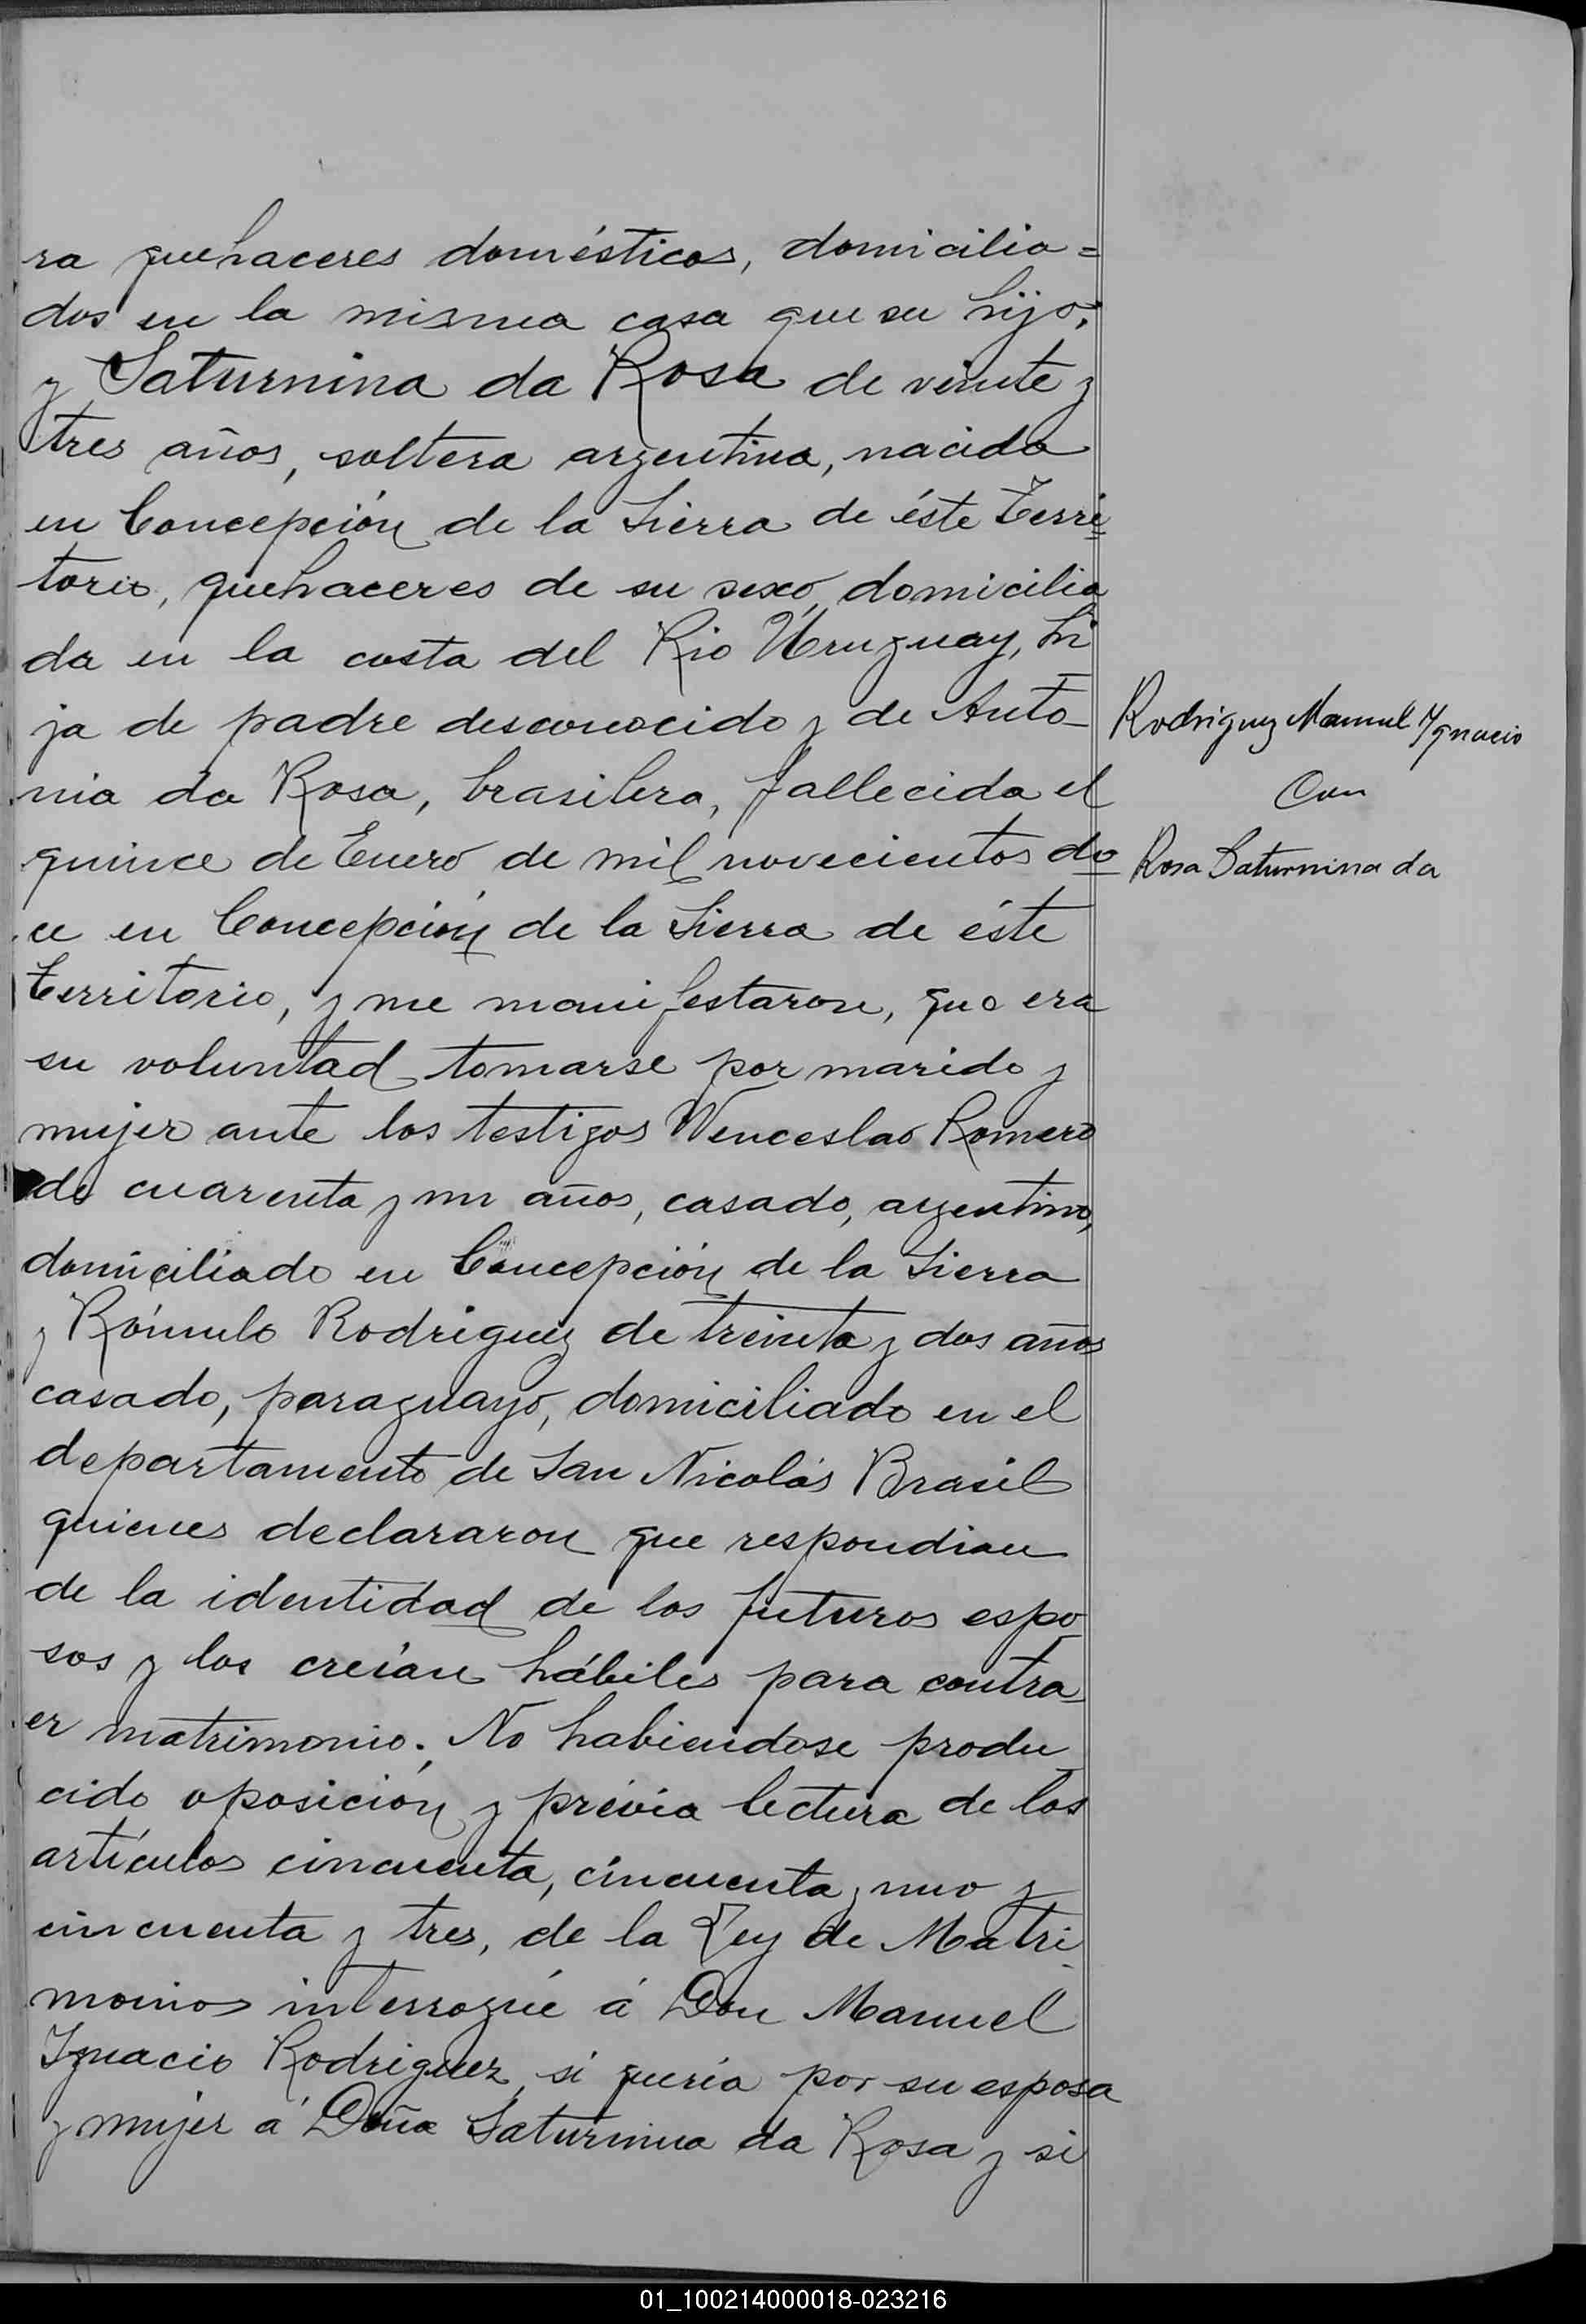 ra quehaceres domésticos, domicilia=
dos en la misma casa que su hijo;
y Saturnina da Rosa de veinte y
tres años, soltera argentina, nacida
en Concepción de la Sierra de éste Terri=
torio, quehaceres de su sexo, domicilia
da en la costa del Rio Uruguay, hi
ja de padre desconocido y de Anto-
nia da Rosa, brasilera, fallecida el
quince de Enero de mil novecientos do-
ce en Concepción de la Sierra de éste
Territorio, y me manifestaron, que era
su voluntad tomarse por marido y
mujer ante los testigos Wenceslao Romero
de cuarenta y un años, casado, argentino,
domiciliado en Concepción de la Sierra
y Rómulo Rodriguez de treinta y dos años
casado, paraguayo, domiciliado en el
departamento de San Nicolás Brasil
quienes declararon que respondian
de la identidad de los futuros espo-
sos y los creían hábiles para contra-
er matrimonio. No habiendose produ-
cido oposición y prévia lectura de los
artículos cincuenta, cincuenta y uno y
cincuenta y tres, de la Ley de Matri-
monios interrogúe á Don Manuel
Ignacio Rodriguez, si quería por su esposa
y mujer á Doña Saturnina da Rosa y si
Rodriguez Manuel Ygnacio
Con
Rosa Saturnina da
01_100214000018-023216